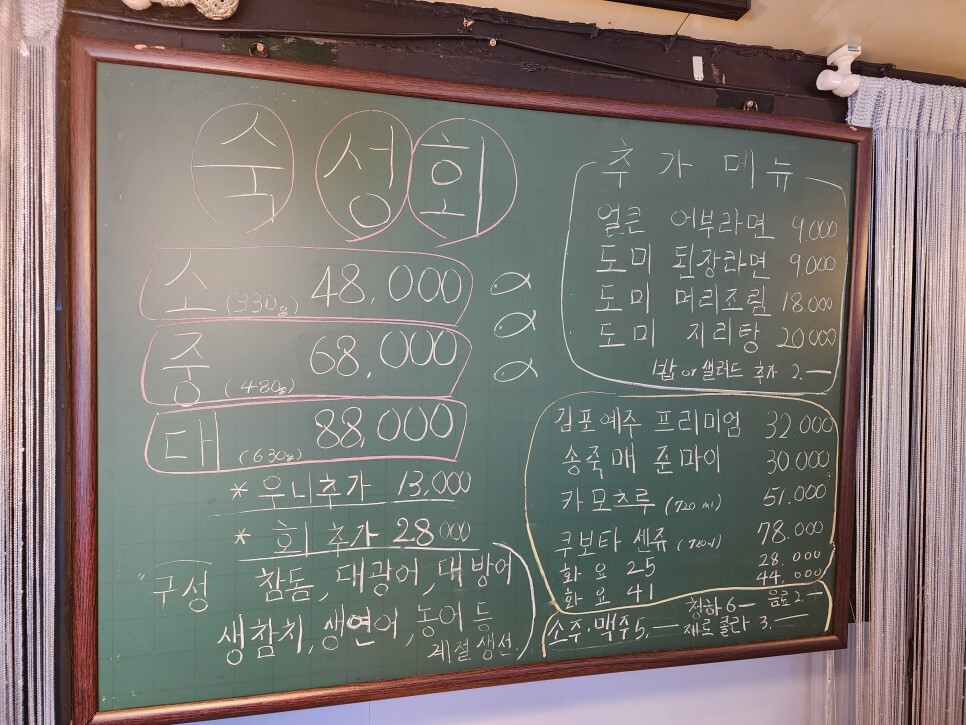 숙성회
소 (330g) 48,000
중 (480g) 68,000
대 (630g) 88,000
* 우니추가 13,000
* 회 추가 28000
"구성 참돔, 대광어, 대방어
생참치, 생연어, 농어 등
계절생선
추가메뉴
얼큰 어부라면 9.000
도미 된장라면 9.000
도미 머리조림 18.000
도미 지리탕 20000
밥 or 샐러드 추가 2.—
김포예주 프리미엄 32.000
송죽매 준마이 30.000
카모츠루 (720ml) 51.000
쿠보타 센쥬 (720ml) 78.000
화요 25 28.000
화요 41 44.000
청하 6— 음료 2.—
소주·맥주 5.— 제로콜라 3.—